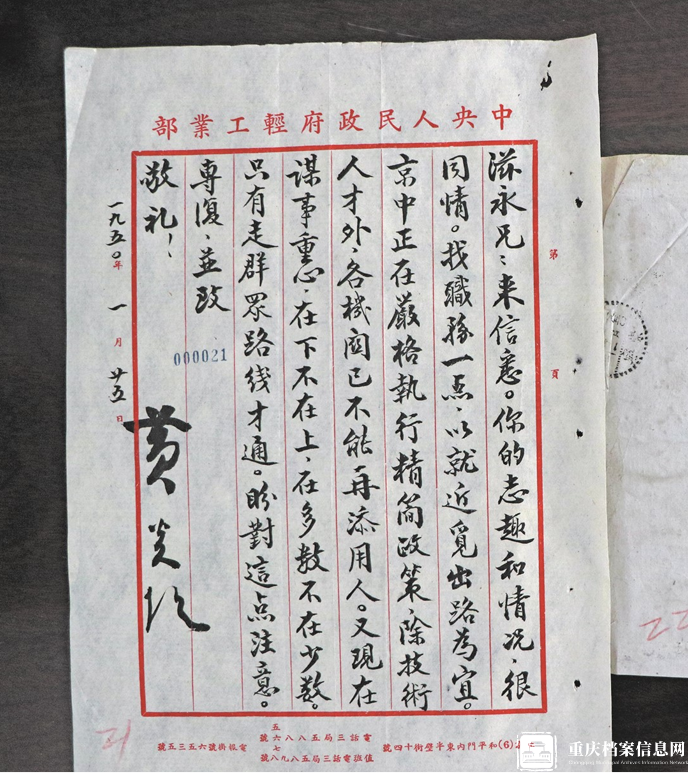 中央人民政府輕工業部
第 頁
滋永兄：来信悉。你的志趣和情况、很
同情。找職務一点、以就近覓出路為宜。
京中正在嚴格執行精简政策、除技術
人才外、各機関已不能再添用人。又現在
謀事重心、在下不在上、在多数不在少数。
只有走群眾路线才通。盼對這点注意。
專復、並致
敬礼！
000021
黄炎培
一九五〇年 一月 廿五日
(6)和平門内東半壁街十四號
電話三局五八八六號
五七
值班電話三局五八九八號
電報掛號六五三五號
21
22
重庆档案信息网